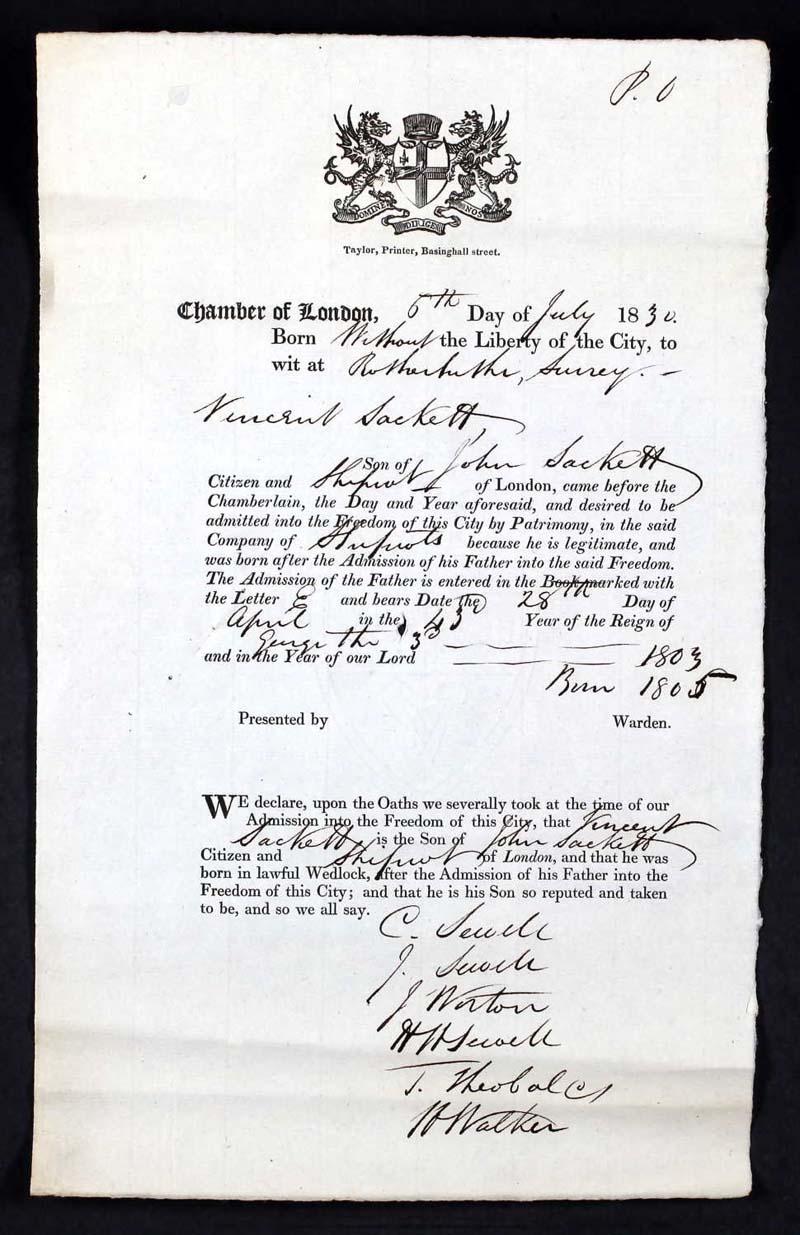 P. O
DOMINE DIRIGE NOS
Taylor, Printer, Basinghall street.
Chamber of London, 6th Day of July 1830.
Born Without the Liberty of the City, to
wit at Rotherhithe, Surrey. -
Vincent Sackett,
Son of John Sackett
Citizen and Shipwt of London, came before the
Chamberlain, the Day and Year aforesaid, and desired to be
admitted into the Freedom of this City by Patrimony, in the said
Company of Shipwts because he is legitimate, and
was born after the Admission of his Father into the said Freedom.
The Admission of the Father is entered in the Book marked with
the Letter E and bears Date the 28th Day of
April in the 43 Year of the Reign of
George the 3d
and in the Year of our Lord 1803
Born 1805
Presented by Warden.
WE declare, upon the Oaths we severally took at the time of our
Admission into the Freedom of this City, that Vincent
Sackett is the Son of John Sackett
Citizen and Shipwt of London, and that he was
born in lawful Wedlock, after the Admission of his Father into the
Freedom of this City; and that he is his Son so reputed and taken
to be, and so we all say.
C. Sewell
J. Sewell
J Worton
H H Sewell
T. Theobald
H Walker